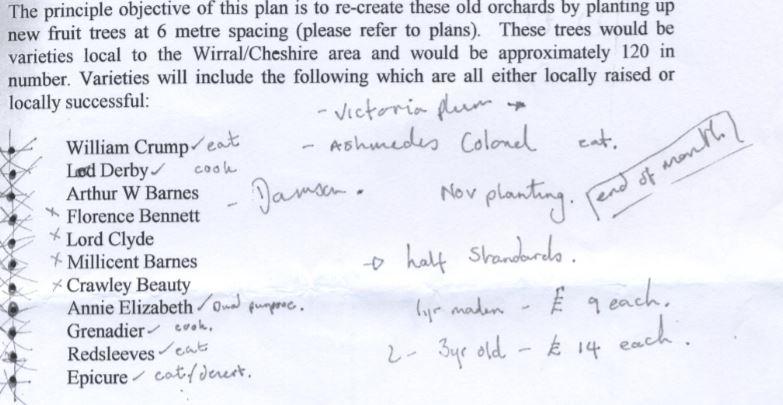 The principle objective of this plan is to re-create these old orchards by planting up
new fruit trees at 6 metre spacing (please refer to plans). These trees would be
varieties local to the Wirral/Cheshire area and would be approximately 120 in
number. Varieties will include the following which are all either locally raised or
locally successful:
- Victoria plum →
William Crump ✓ eat
- Ashmedes Colonel eat.
Lod Derby ✓ cook
Arthur W Barnes
- Damson.
Nov planting. [end of month.]
× Florence Bennett
× Lord Clyde
× Millicent Barnes
→ half standards.
× Crawley Beauty
Annie Elizabeth ✓ Dual purpose.
1yr maden - £ 9 each.
Grenadier ✓ cook.
Redsleeves ✓ eat
2 - 3yr old - £ 14 each.
Epicure ✓ eat/desert.